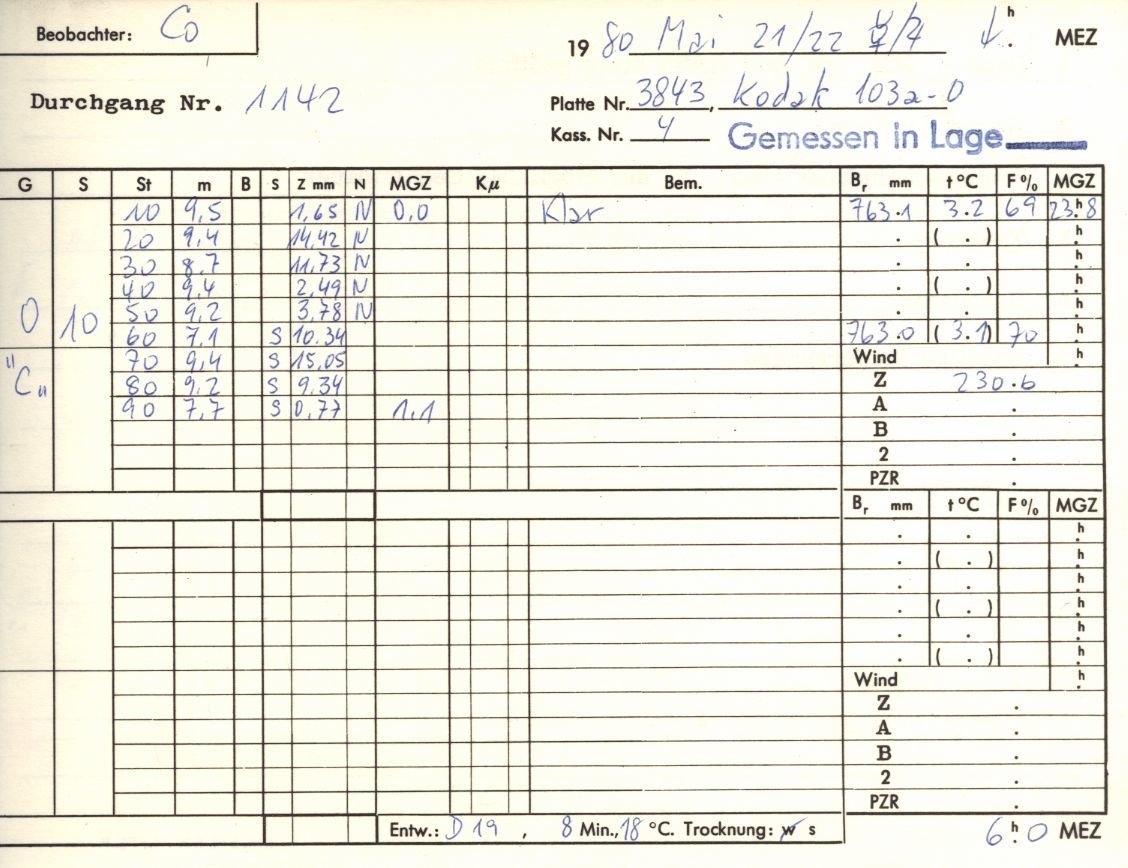 Beobachter: Co
19 80 Mai 21/22 h. MEZ
Durchgang Nr. 1142
Platte Nr. 3843, Kodak 103a-O
Kass. Nr. 4 Gemessen in Lage
G S St m B S Z mm N MGZ Kμ Bem. Br mm t °C F % MGZ
10 9,5 1,65 N 0,0 Klar 763.1 3.2 69 23.h8
20 9,4 14,42 N . ( . ) h.
30 8.7 11,73 N . . h.
40 9,4 2,49 N . ( . ) h.
O 10 50 9,2 3,78 N . . h.
60 7,1 S 10.34 763.0 ( 3.1) 70 h.
70 9,4 S 15,05 Wind h.
"C" 80 9,2 S 9,34 Z 230.6
90 7,7 S 0,77 1,1 A .
B .
2 .
PZR .
Br mm t °C F % MGZ
. . h.
. ( . ) h.
. . h.
. ( . ) h.
. . h.
. ( . ) h.
Wind h.
Z .
A .
B .
2 .
PZR .
Entw.: D 19 , 8 Min., 18 °C. Trocknung: w s 6 h. 0 MEZ